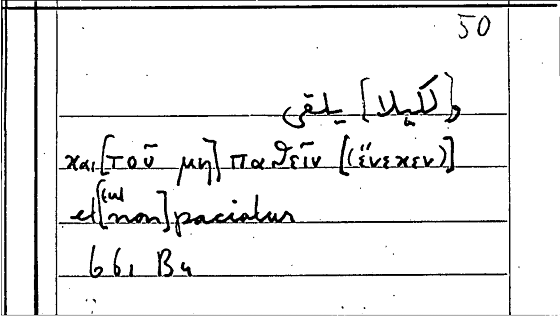 50
و[لكيلا] يلقى
και [τοῦ μη] παθεῖν [(ἕνεκεν)]
et [(ut) non] paciatur